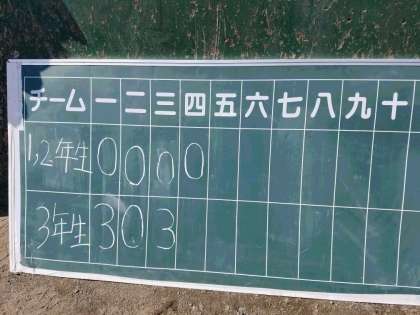 チーム 一 二 三 四 五 六 七 八 九 十
1,2年生 0 0 0 0
3年生 3 0 3